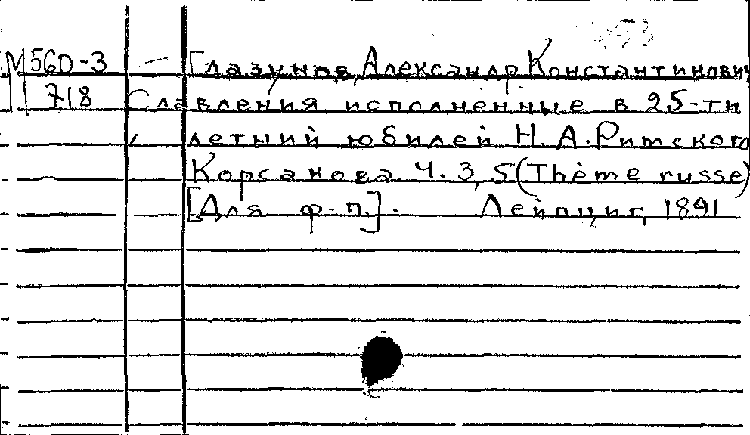 М560-3 Глазунов, Александр Константинович
718 Славления исполненные в 25-ти
летний юбилей Н. А. Римского
Корсакова. Ч. 3, 5 (Thème russe)
[Для ф-п.]. Лейпциг, 1891